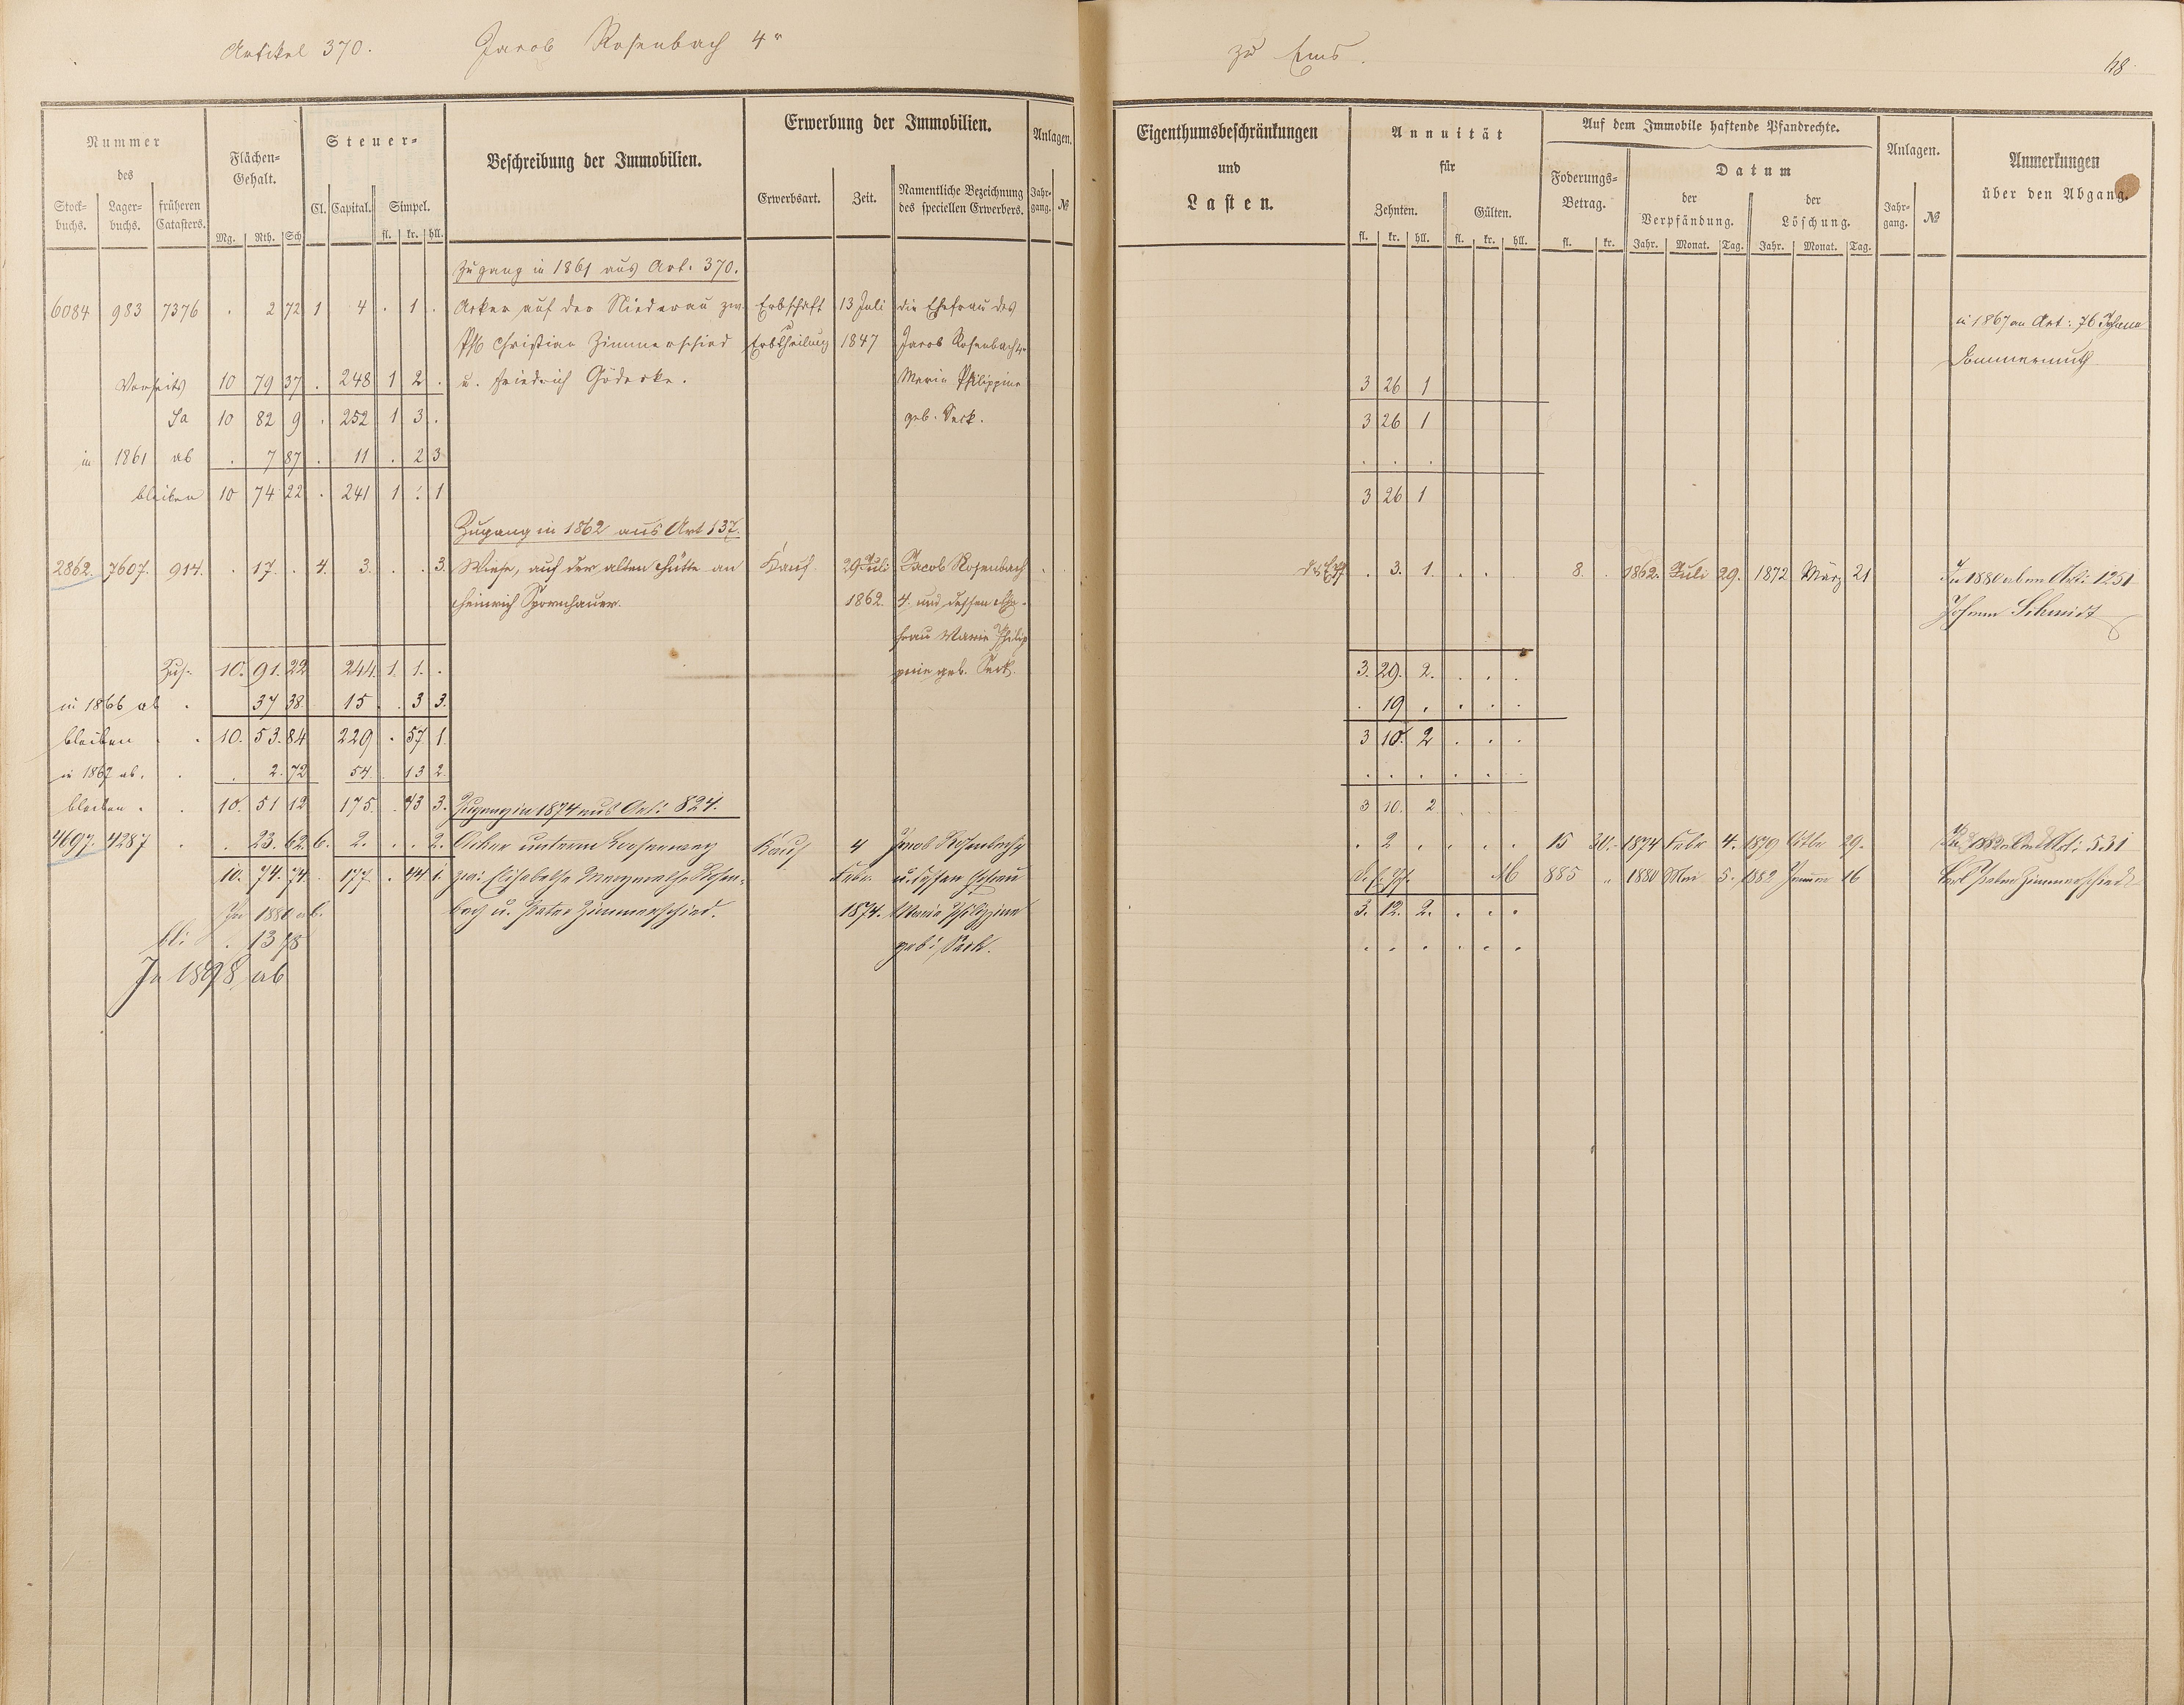 Artikel 370. Jacob Rosenbach 4r zu Ems. 48
Nummer des
Stock= buchs. Lager= buchs. früheren Catasters.
Flächen= Gehalt.
Mg. Rth. Sch
Steuer=
Cl. Capital. Simpel.
fl. kr. hll.
Beschreibung der Immobilien.
Erwerbung der Immobilien.
Erwerbsart. Zeit. Namentliche Bezeichnung des speciellen Erwerbers.
Anlagen.
Jahr= gang. №
Eigenthumsbeschränkungen
und
Lasten.
Annuität
für
Zehnten. Gülten.
fl. kr. hll. fl. kr. hll.
Auf dem Immobile haftende Pfandrechte.
Foderungs= Betrag.
fl. kr.
Datum
der Verpfändung. der Löschung.
Jahr. Monat. Tag. Jahr. Monat. Tag.
Anlagen.
Jahr= gang. №
Anmerkungen
über den Abgang.
Zugang in 1861 aus Art. 370.
6084 983 7376 . 2 72 1 4 . 1 . Acker auf der Niederau zw. Erbschaft 13 Juli die Ehefrau des in 1867 an Art: 76 Johann
Ph. Christian Zimmerschied u Erbtheilung 1847 Jacob Rosenbach 4r Sommermuth
Vorseits 10 79 37 . 248 1 2 . u. Friedrich Gödecke. Maria Philippine 3 26 1
Sa 10 82 9 . 252 1 3 . geb. Seck. 3 26 1
in 1861 ab . 7 87 . 11 . 2 3 . . .
bleiben 10 74 22 . 241 1 . 1 3 26 1
Zugang in 1862 aus Art 137.
2862. 7607. 914. . 17. . 4. 3. . . 3. Wiese, auf der alten Hütte an Kauf. 29 Juli Jacob Rosenbach . 3. 1. . . . 8. . 1862. Juli 29. 1872 März 21 In 1880 ab an Art: 1251
Heinrich Spornhauer. 1862. 4. und dessen Ehe=
Johann Schmidt
frau Maria Philip
Zus. 10. 91. 22 244. 1. 1. . pine geb. Seck. 3. 29. 2. . . .
in 1866 ab . 37 38. 15 . 3 3. . 19 . . . .
bleiben . . 10. 53. 84 229 . 57 1. 3 10. 2 . . .
in 1867 ab. . . 2. 72 54. 13 2. . . . . . .
bleiben . . 10. 51 12 175. . 43 3. Zugang in 1874 aus Art: 824. 3 10. 2
4697. 4287 . . 23. 62. 6. 2. . . 2. Acker unterm Kauf 4 Jacob Rosenbach . 2 . . . . 15 30. 1874 Febr 4. 1879 Octbr 29. In 1882 ab an Art: 531
10. 74. 74. 177. . 44 1. zw: Elisabetha Margaretha Rosen= Febr. u. dessen Ehefrau 885 . 1880 Mai 5. 1882 Januar 16 Carl Peter Zimmerschied
In 1880 ab. bach u. Peter Zimmerschied. 1874. Maria Philippine 3. 12. 2. . . .
bl: . 13 78 geb: Seck. . . . . . .
In 1898 ab